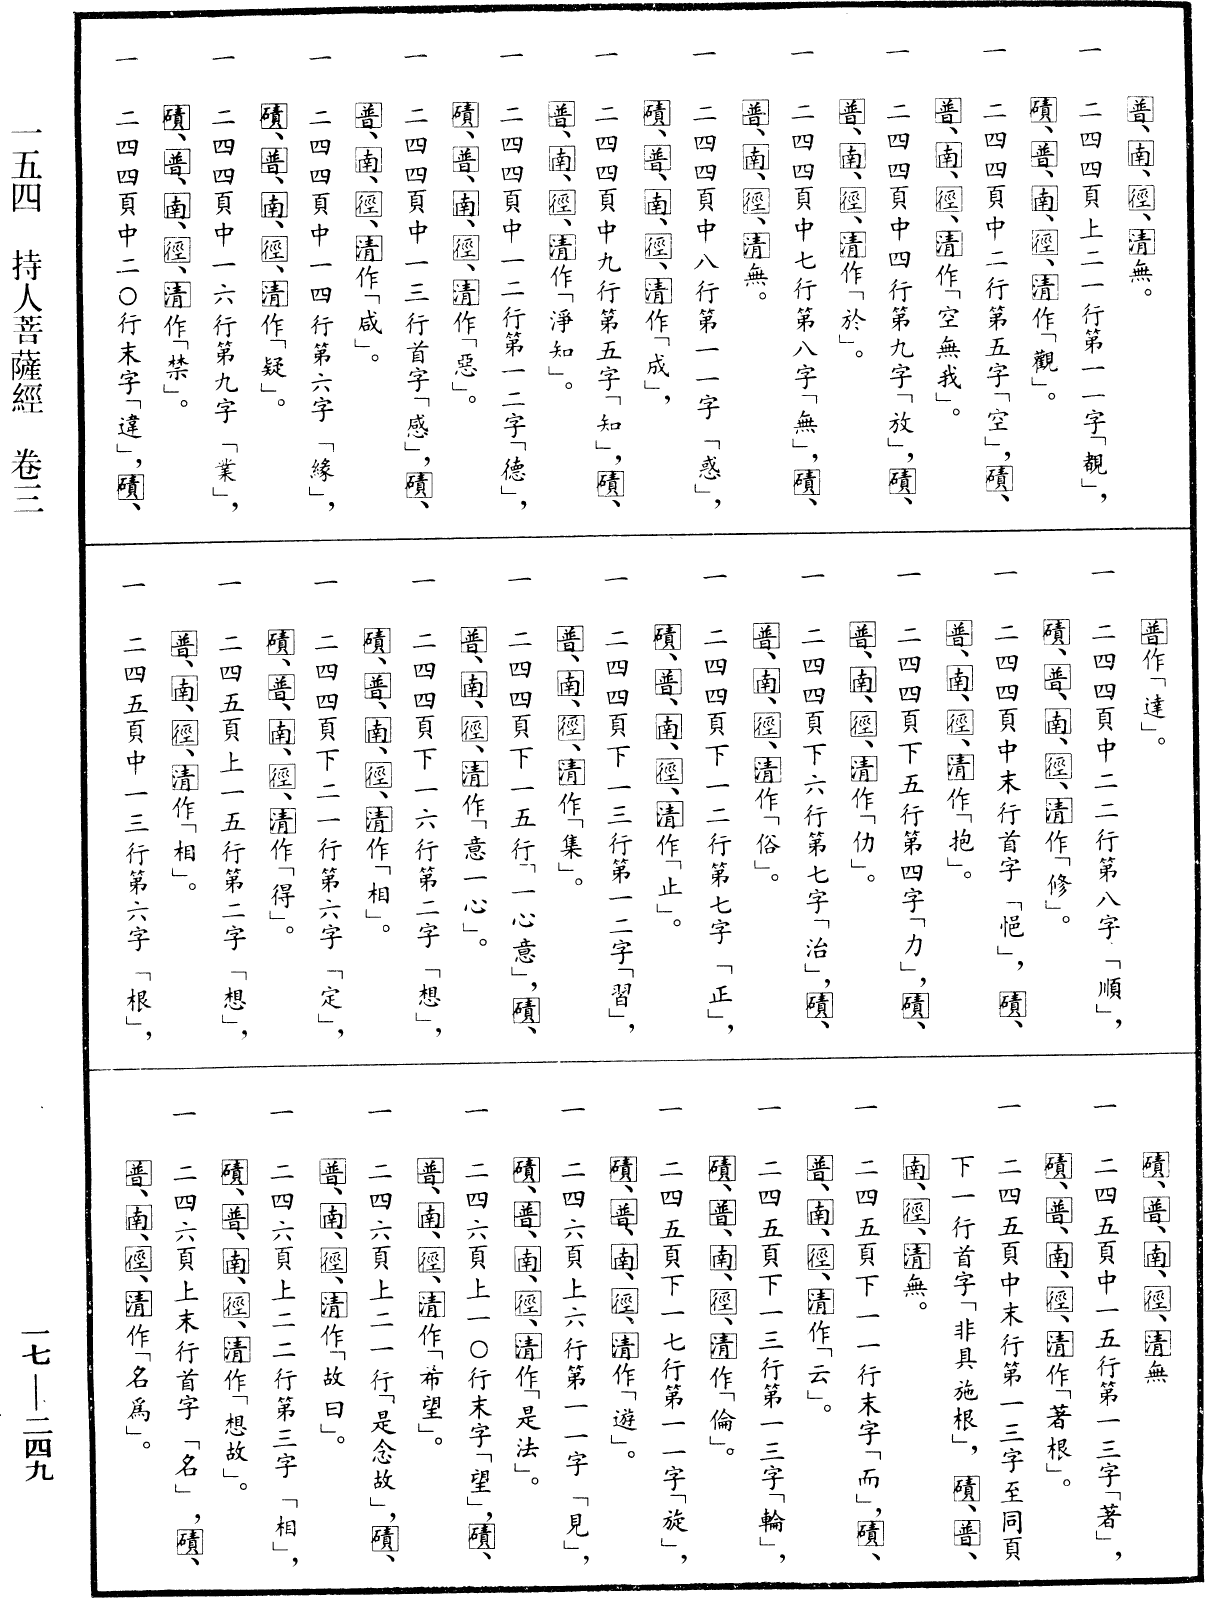 普、南、徑、清無。
一 二四四頁上二一行第一一字「覩」，
磧、普、南、徑、清作「觀」。
一 二四四頁中二行第五字「空」，磧、
普、南、徑、清作「空無我」。
一 二四四頁中四行第九字「放」，磧、
普、南、徑、清作「於」。
一 二四四頁中七行第八字「無」，磧、
普、南、徑、清無。
一 二四四頁中八行第一一字「惑」，
磧、普、南、徑、清作「成」，
一 二四四頁中九行第五字「知」，磧、
普、南、徑、清作「淨知」。
一 二四四頁中一二行第一二字「德」，
磧、普、南、徑、清作「惡」。
一 二四四頁中一三行首字「感」，磧、
普、南、徑、清作「咸」。
一 二四四頁中一四行第六字「緣」，
磧、普、南、徑、清作「疑」。
一 二四四頁中一六行第九字「業」，
磧、普、南、徑、清作「禁」。
一 二四四頁中二〇行末字「違」，磧、
普作「達」。
一 二四四頁中二二行第八字「順」，
磧、普、南、徑、清作「修」。
一 二四四頁中末行首字「悒」，磧、
普、南、徑、清作「抱」。
一 二四四頁下五行第四字「力」，磧、
普、南、徑、清作「仂」。
一 二四四頁下六行第七字「治」，磧、
普、南、徑、清作「俗」。
一 二四四頁下一二行第七字「正」，
磧、普、南、徑、清作「止」。
一 二四四頁下一三行第一二字「習」，
普、南、徑、清作「集」。
一 二四四頁下一五行「一心意」，磧、
普、南、徑、清作「意一心」。
一 二四四頁下一六行第二字「想」，
磧、普、南、徑、清作「相」。
一 二四四頁下二一行第六字「定」，
磧、普、南、徑、清作「得」。
一 二四五頁上一五行第二字「想」，
普、南、徑、清作「相」。
一 二四五頁中一三行第六字「根」，
磧、普、南、徑、清無
一 二四五頁中一五行第一三字「著」，
磧、普、南、徑、清作「著根」。
一 二四五頁中末行第一三字至同頁
下一行首字「非具施根」，磧、普、
南、徑、清無。
一 二四五頁下一一行末字「而」，磧、
普、南、徑、清作「云」。
一 二四五頁下一三行第一三字「輪」，
磧、普、南、徑、清作「倫」。
一 二四五頁下一七行第一一字「旋」，
磧、普、南、徑、清作「遊」。
一 二四六頁上六行第一一字「見」，
磧、普、南、徑、清作「是法」。
一 二四六頁上一〇行末字「望」，磧、
普、南、徑、清作「希望」。
一 二四六頁上二一行「是念故」，磧、
普、南、徑、清作「故曰」。
一 二四六頁上二二行第三字「相」，
磧、普、南、徑、清作「想故」。
一 二四六頁上末行首字「名」，磧、
普、南、徑、清作「名爲」。
一五四 持人菩薩經 卷三
一七—二四九